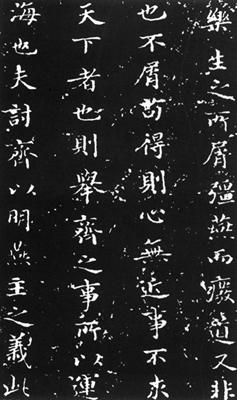 樂生之所屑彊燕而廢道又非
也不屑苟得則心無近事不求
天下者也則舉齊之事所以運
海也夫討齊以明燕主之義此